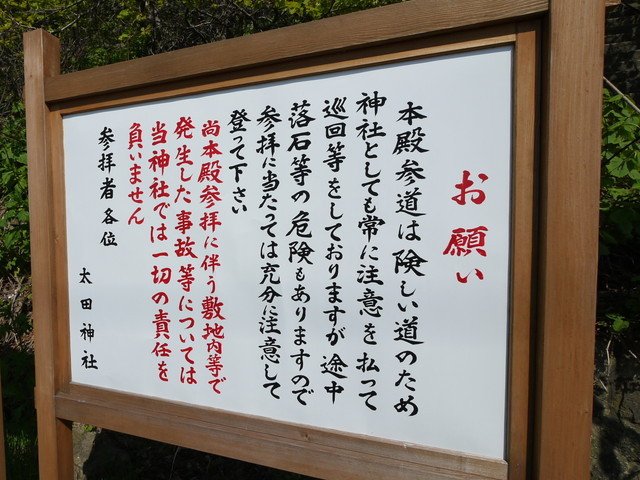 お願い
本殿参道は険しい道のため
神社としても常に注意を払って
巡回等をしておりますが途中
落石等の危険もありますので
参拝に当たっては充分に注意して
登って下さい
尚本殿参拝に伴う敷地内等で
発生した事故等については
当神社では一切の責任を
負いません
参拝者各位
太田神社